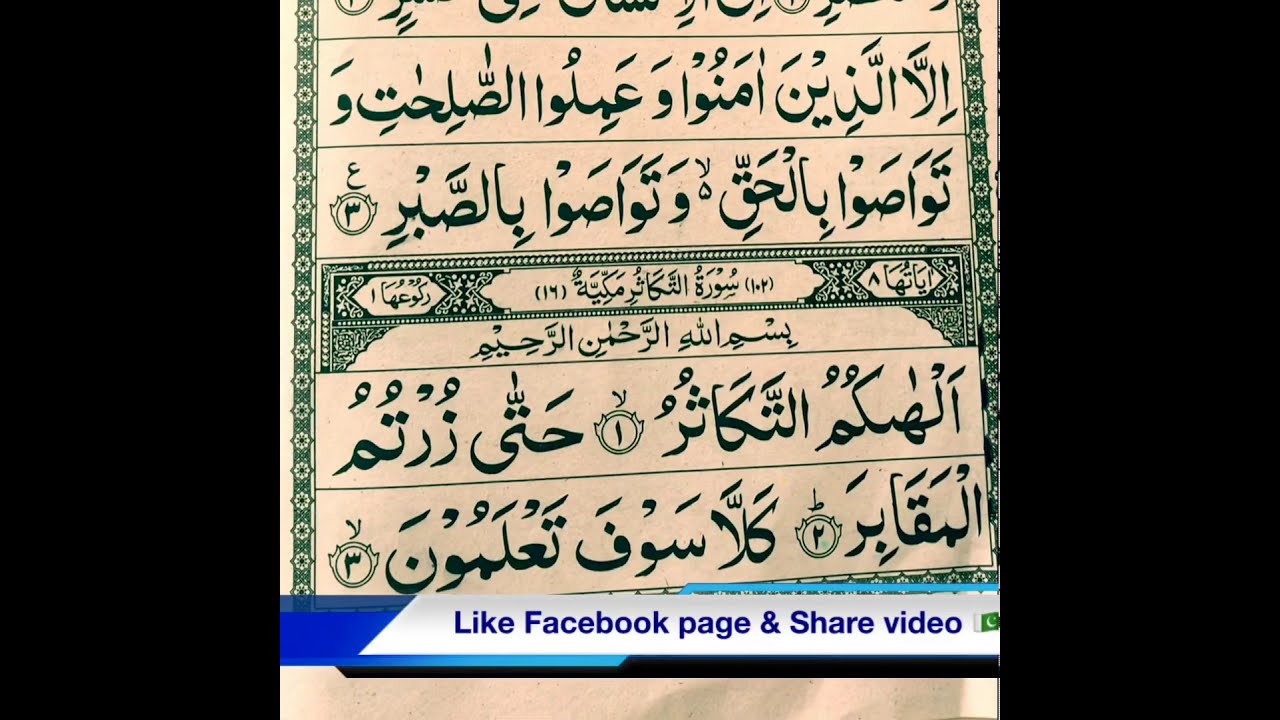 اِلَّا الَّذِيْنَ اٰمَنُوْا وَ عَمِلُوا الصّٰلِحٰتِ وَ
تَوَاصَوْا بِالْحَقِّ ۙ۬ وَ تَوَاصَوْا بِالصَّبْرِ ﴿۳﴾ ع
اٰيَاتُهَا ۸ (۱۰۲) سُوْرَةُ التَّكَاثُرِ مَكِّيَّةٌ (۱۶) رُكُوْعُهَا ۱
بِسْمِ اللهِ الرَّحْمٰنِ الرَّحِيْمِ
اَلْهٰىكُمُ التَّكَاثُرُ ۙ﴿۱﴾ حَتّٰى زُرْتُمُ
الْمَقَابِرَ ؕ﴿۲﴾ كَلَّا سَوْفَ تَعْلَمُوْنَ ۙ﴿۳﴾
Like Facebook page & Share video 🇵🇰